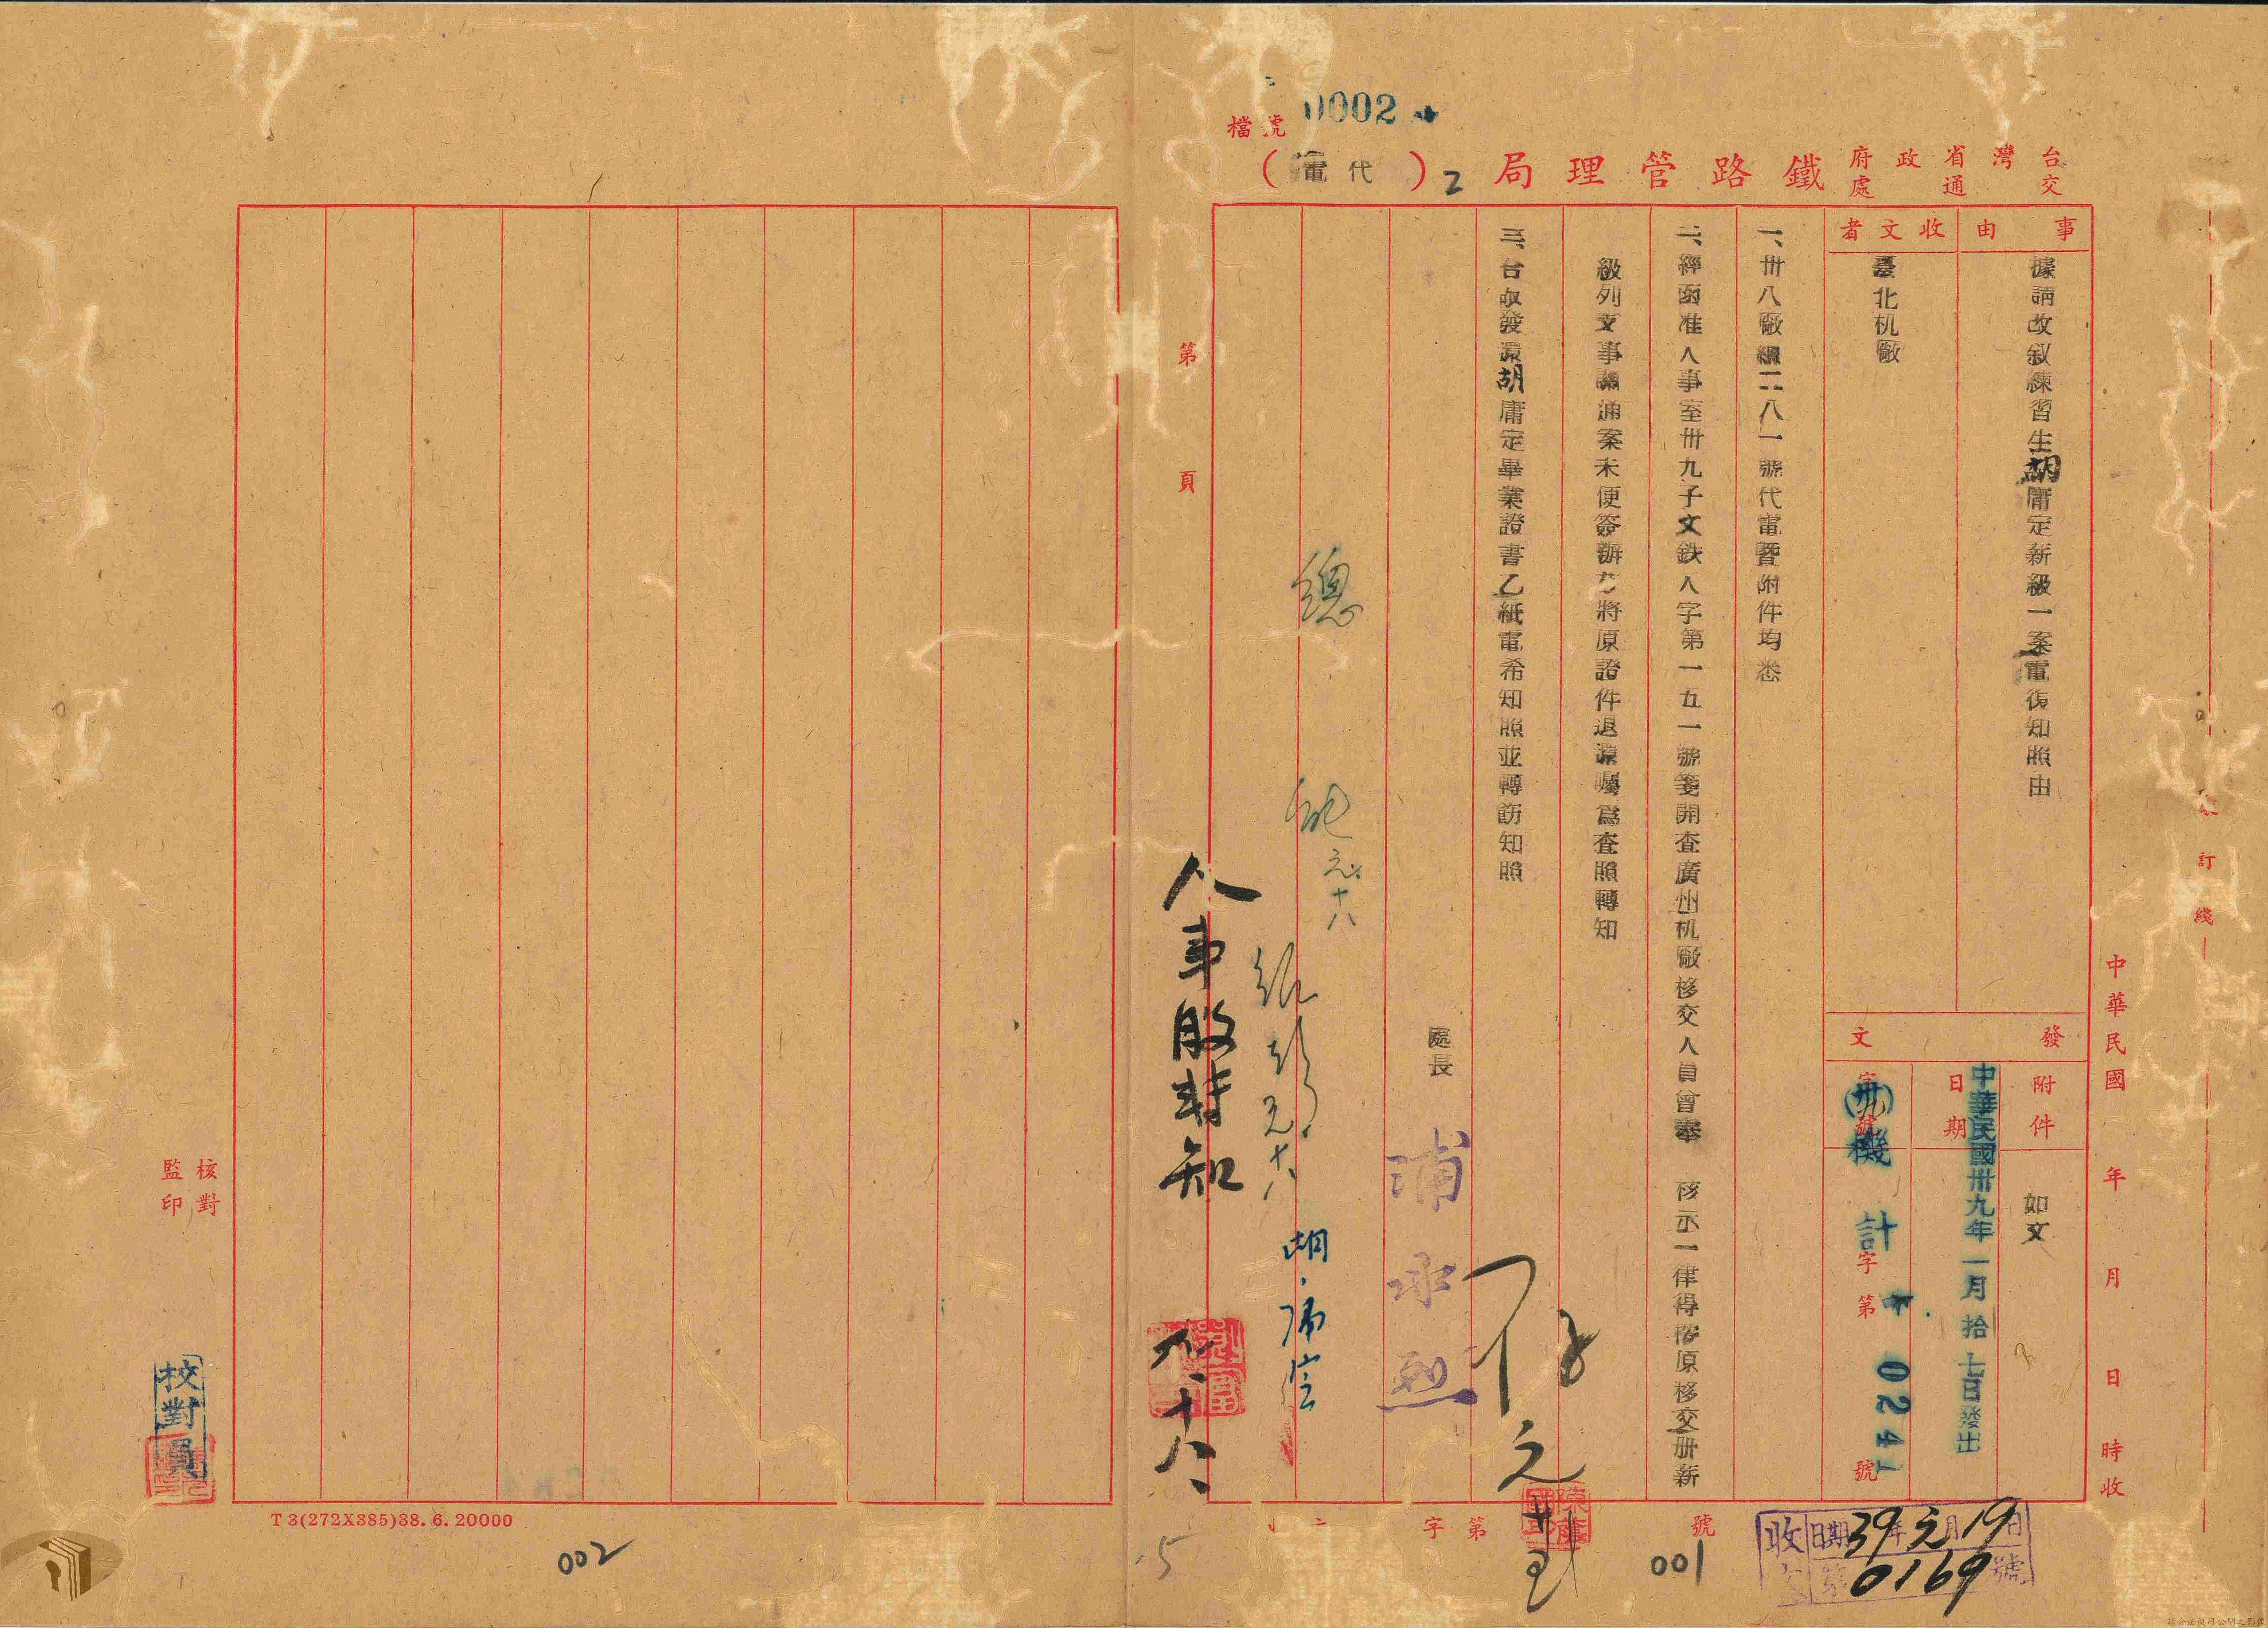 檔號
0002
台灣省政府交通處鐵路管理局（代電）
事由
據請改敘練習生胡庸定新級一案電復知照由
收文者
臺北机廠
發文
附件
如文
日期
中華民國卅九年一月拾七日發出
字號
(卅九)機計字第0241號
一、卅八廠總二八一號代電暨附件均悉
二、經函准人事室卅九子文鉄人字第一五一號箋開查廣州机廠移交人員曾奉　核示一律得按原移交册薪
級列支事關通案未便簽辦茲將原證件退還囑爲查照轉知
三、合行發還胡庸定畢業證書乙紙電希知照並轉飭知照
處長
浦永烈
總
元
十八
元十八
胡庸定
人事股對知
元十八
第　頁
中華民國　年　月　日　時收
訂綫
字第　號
收文
日期39年元月19日
字0169號
001
002
核對
監印
校對員
T 3(272X385)38. 6. 20000